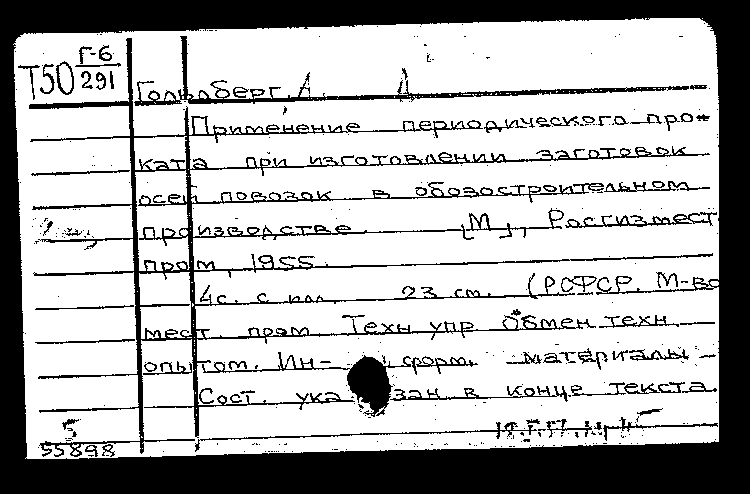 Г-6
Т50 291
Гольдберг, А. Д
Применение периодического про-
ката при изготовлении заготовок
осей повозок в обозостроительном
производстве. [М.], Росгизмест-
пром, 1955.
4с. с илл. 23 см. (РСФСР. М-во
мест. пром Техн упр Обмен техн.
опытом. Ин- форм. материалы
Сост. указан в конце текста.
5
55898